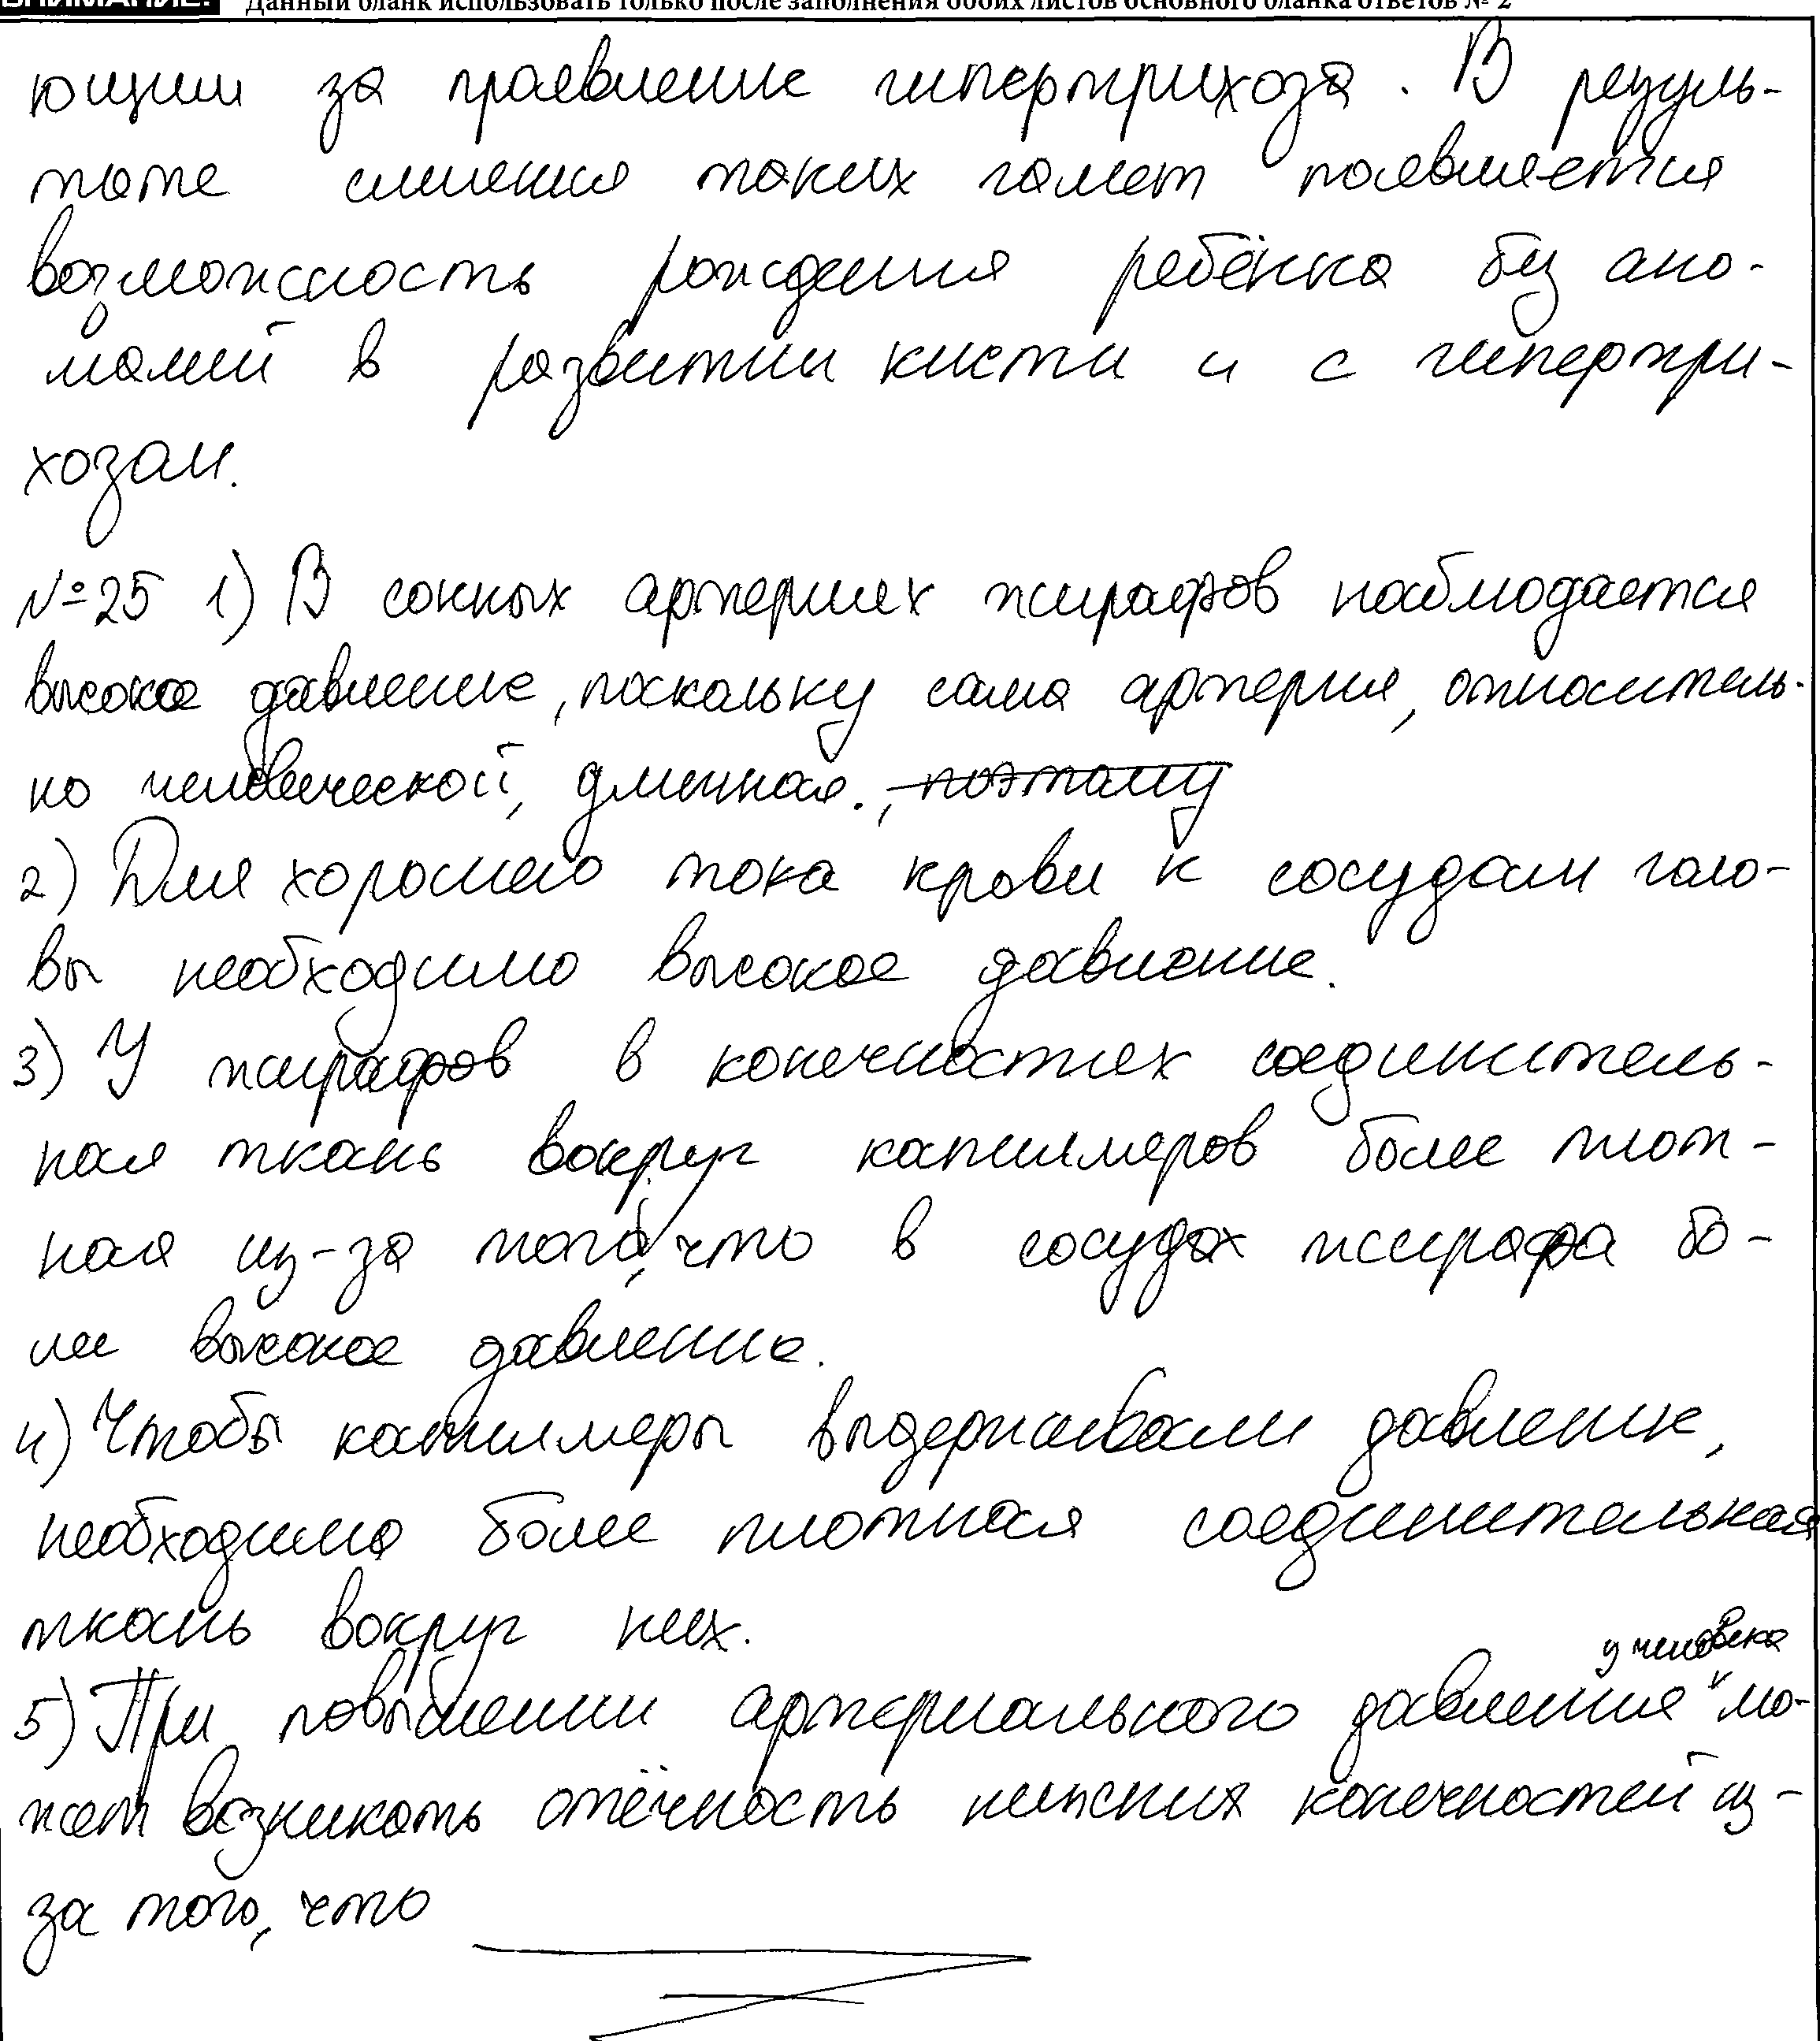 ВНИМАНИЕ! Данный бланк использовать только после заполнения обоих листов основного бланка ответов № 2
ющим за проявление гипертрихоза. В резуль-
тате слияния таких гамет появляется
возможность рождения ребёнка без ано-
малий в развитии кисти и с гипертри-
хозом.
№25 1) В сонных артериях жирафов наблюдается
высокое давление, поскольку сама артерия, относитель-
но человеческой, длинная., поэтому
2) Для хорошего тока крови к сосудам голо-
вы необходимо высокое давление.
3) У жирафов в конечностях соединитель-
ная ткань вокруг капилляров более плот-
ная из-за того, что в сосудах жирафа бо-
лее высокое давление.
4) Чтобы капилляры выдерживали давление,
необходима более плотная соединительная
ткань вокруг них.
у человека
5) При повышении артериального давления мо-
жет возникать отёчность нижних конечностей из-
за того, что